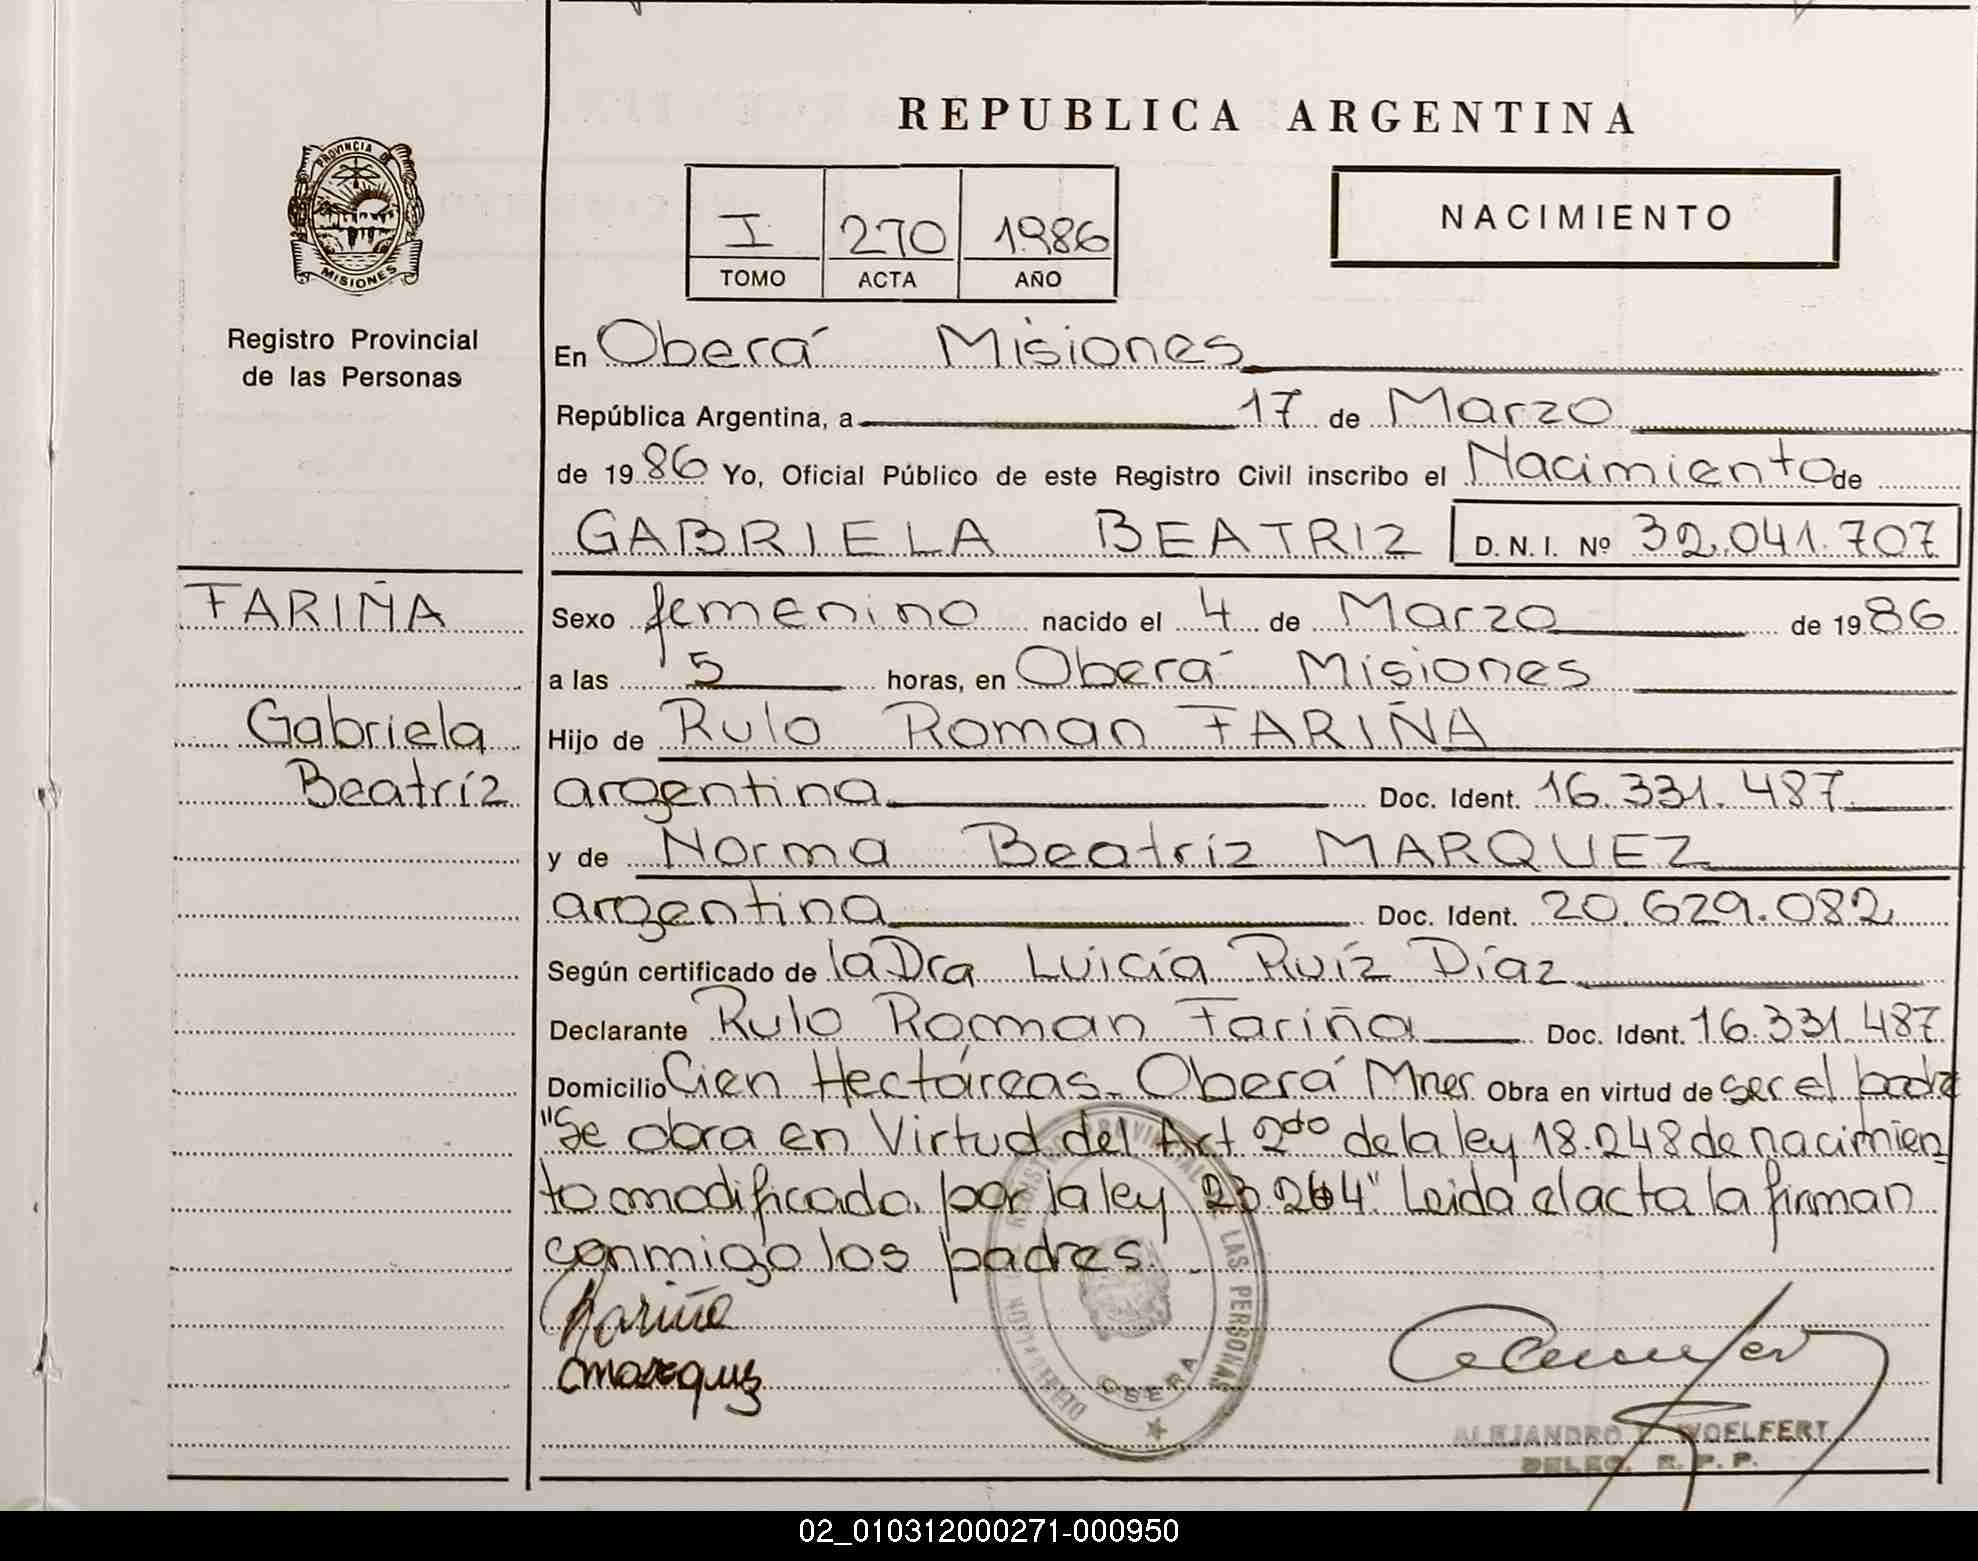 REPUBLICA ARGENTINA
PROVINCIA DE
MISIONES
I 270 1986
TOMO ACTA AÑO
NACIMIENTO
Registro Provincial
de las Personas
En Oberá Misiones
República Argentina, a 17 de Marzo
de 1986 Yo, Oficial Público de este Registro Civil inscribo el Nacimiento de
GABRIELA BEATRIZ D. N. I. Nº 32.041.707
FARIÑA
Gabriela
Beatríz
Sexo femenino nacido el 4 de Marzo de 1986
a las 5 horas, en Oberá Misiones
Hijo de Rulo Roman FARIÑA
argentina Doc. Ident. 16.331.487
y de Norma Beatríz MARQUEZ
argentina Doc. Ident. 20.629.082
Según certificado de la Dra Luicía Ruíz Díaz
Declarante Rulo Roman Fariña Doc. Ident. 16.331.487
Domicilio Cien Hectáreas. Oberá Mnes Obra en virtud de ser el padre
"Se obra en Virtud del Art 2do de la ley 18.248 de nacimien
to modificado por la ley 23.264" Leida el acta la firman
conmigo los padres.
Fariña
Marquez
REGISTRO PROVINCIAL DE LAS PERSONAS
DELEGACION
OBERA
ALEJANDRO WOELFERT
DELEG. R. P. P.
02_010312000271-000950